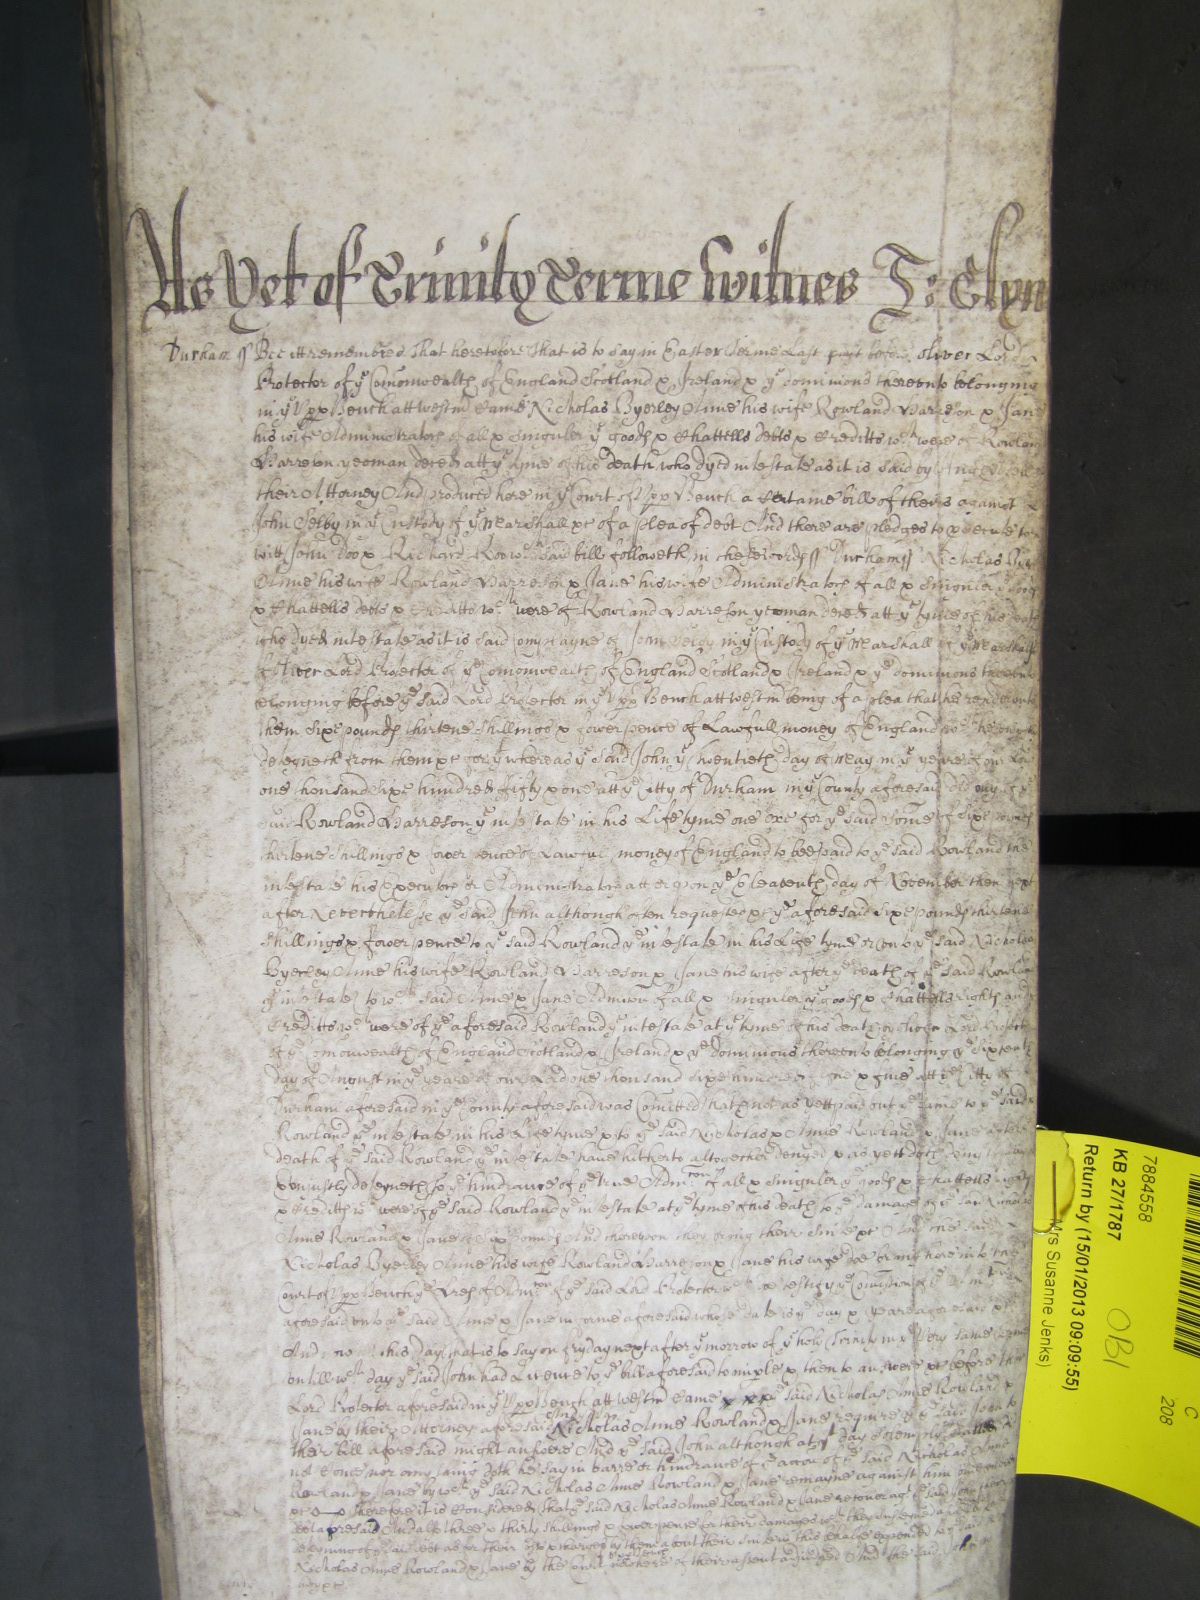 As Yet of Trinity Terme Witnes J: Glyn
Durham ss Bee it remembred That heretofore That is to say in Easter Terme Last past before Oliver Lord
Protector of ye Comonwealth of England Scotland & Ireland & ye dominions thereunto belonging
in ye Uppr Bench att Westmr Came Nicholas Byerley Anne his wife Rowland Harreson & Jane
his wife Administrators of all & singuler ye goods & Chattells debts & Creditts wch were of Rowland
Harreson yeoman deced att ye tyme of his death who dyed intestate as it is said by
their Attorney And produced here in ye Court of Uppr Bench a Certaine bill of theirs against
John Selby in ye Custody of ye Marshall &c of a plea of debt And there are pledges to prosecute to
witt John Doo & Richard Roo wch said bill followeth in these words ss Durham ss Nicholas
Anne his wife Rowland Harreson & Jane his wife Administrators of all & singuler ye goods
& Chattells debts & Creditts wch were of Rowland Harreson yeoman deced att ye tyme of his death
who dyed intestate as it is said complayne of John Selby in ye Custody of ye Marshall of ye Marshalsey
of Oliver Lord Protector of ye Comonwealth of England Scotland & Ireland & ye dominions thereunto
belonging before ye said Lord Protector in ye Uppr Bench att Westmr being of a plea that he render unto
them Sixe pounds thirtene shillings & fower pence of Lawfull money of England wch he
deteyneth from them &c for yt whereas ye said John ye Twentieth day of May in ye yeare of our Lord
one thousand Sixe hundred fifty & one att ye Citty of Durham in ye County aforesaid
said Rowland Harreson ye intestate in his Life tyme one &c for ye said some of Sixe pounds
thirtene shillings & fower pence of Lawful money of England to bee paid to ye said Rowland the
intestate his Executors or Administrators att or upon ye Eleaventh day of November then next
after Neverthelesse ye said John although often requested &c ye aforesaid Sixe pounds thirtene
shillings & fower pence to ye said Rowland ye intestate in his Life tyme or to ye said Nicholas
Byerley Anne his wife Rowland Harreson & Jane his wife after ye death of ye said Rowland
ye intestate to wch said Anne & Jane Admon of all & singuler ye goods & Chattells rights and
Creditts wch were of ye aforesaid Rowland ye intestate at ye tyme of his death by Oliver Lord Protector
of ye Comonwealth of England Scotland & Ireland & ye dominions thereunto belonging ye Sixteenth
day of August in ye yeare of our Lord one thousand sixe hundred & five att ye Citty of
Durham aforesaid in ye County aforesaid was Comitted hath not as yett paid but ye same to ye said
Rowland ye intestate in his Life tyme & to ye said Nicholas & Anne Rowland & Jane after
death of ye said Rowland ye intestate have hitherto altogether denyed & as yett doth deny
& unjustly deteyneth to ye hindrance of ye true Admcon of all & singuler ye goods & Chattells rights
& Creditts wch were of ye said Rowland ye intestate at ye tyme of his death to ye damage of ye said Nicholas
Anne Rowland & Jane pounds And thereupon they bring their Suite &c And the said
Nicholas Byerley Anne his wife Rowland Harreson & Jane his wife doe bring here into the
Court of Uppr Bench ye Lres of Admcon of ye said Lord Protector wch doe testify ye Comission of ye
aforesaid unto ye said Anne & Jane in forme aforesaid whose date is ye day & yeare aforesaid &c
And now att this day that is to say on fryday next after ye morrow of ye holy Trinity in ye Very same Terme
untill wch day ye said John had Licence to ye bill aforesaid to imparle & then to answere &c before the
Lord Protector aforesaid in ye Uppr Bench att Westmr Came ye said Nicholas Anne Rowland &
Jane by their Attorney aforesaid Nicholas Anne Rowland & Jane require ye said John to
their bill aforesaid might answere And ye said John although att ye day solemnly called
not Come nor any thing doth he say in barre or hindrance of ye accon of ye said Nicholas Anne
Rowland & Jane by wch ye said Nicholas Anne Rowland & Jane remayne against him
&c Therefore it is Considered that ye said Nicholas Anne Rowland & Jane recover agt ye said John their
debt aforesaid And alsoe three & thirty shillings & fower pence for their damages wch they
deteyning of ye said debt as for their Costs & charges by them about their Suite in this behalfe expended to ye said
Nicholas Anne Rowland & Jane by the Court here of their assent adjudged And the said John in
mercy &c
7884558
KB 27/1787
Return by (15/01/2013 09:09:55)
Mrs Susanne Jenks)
OBI
C
208